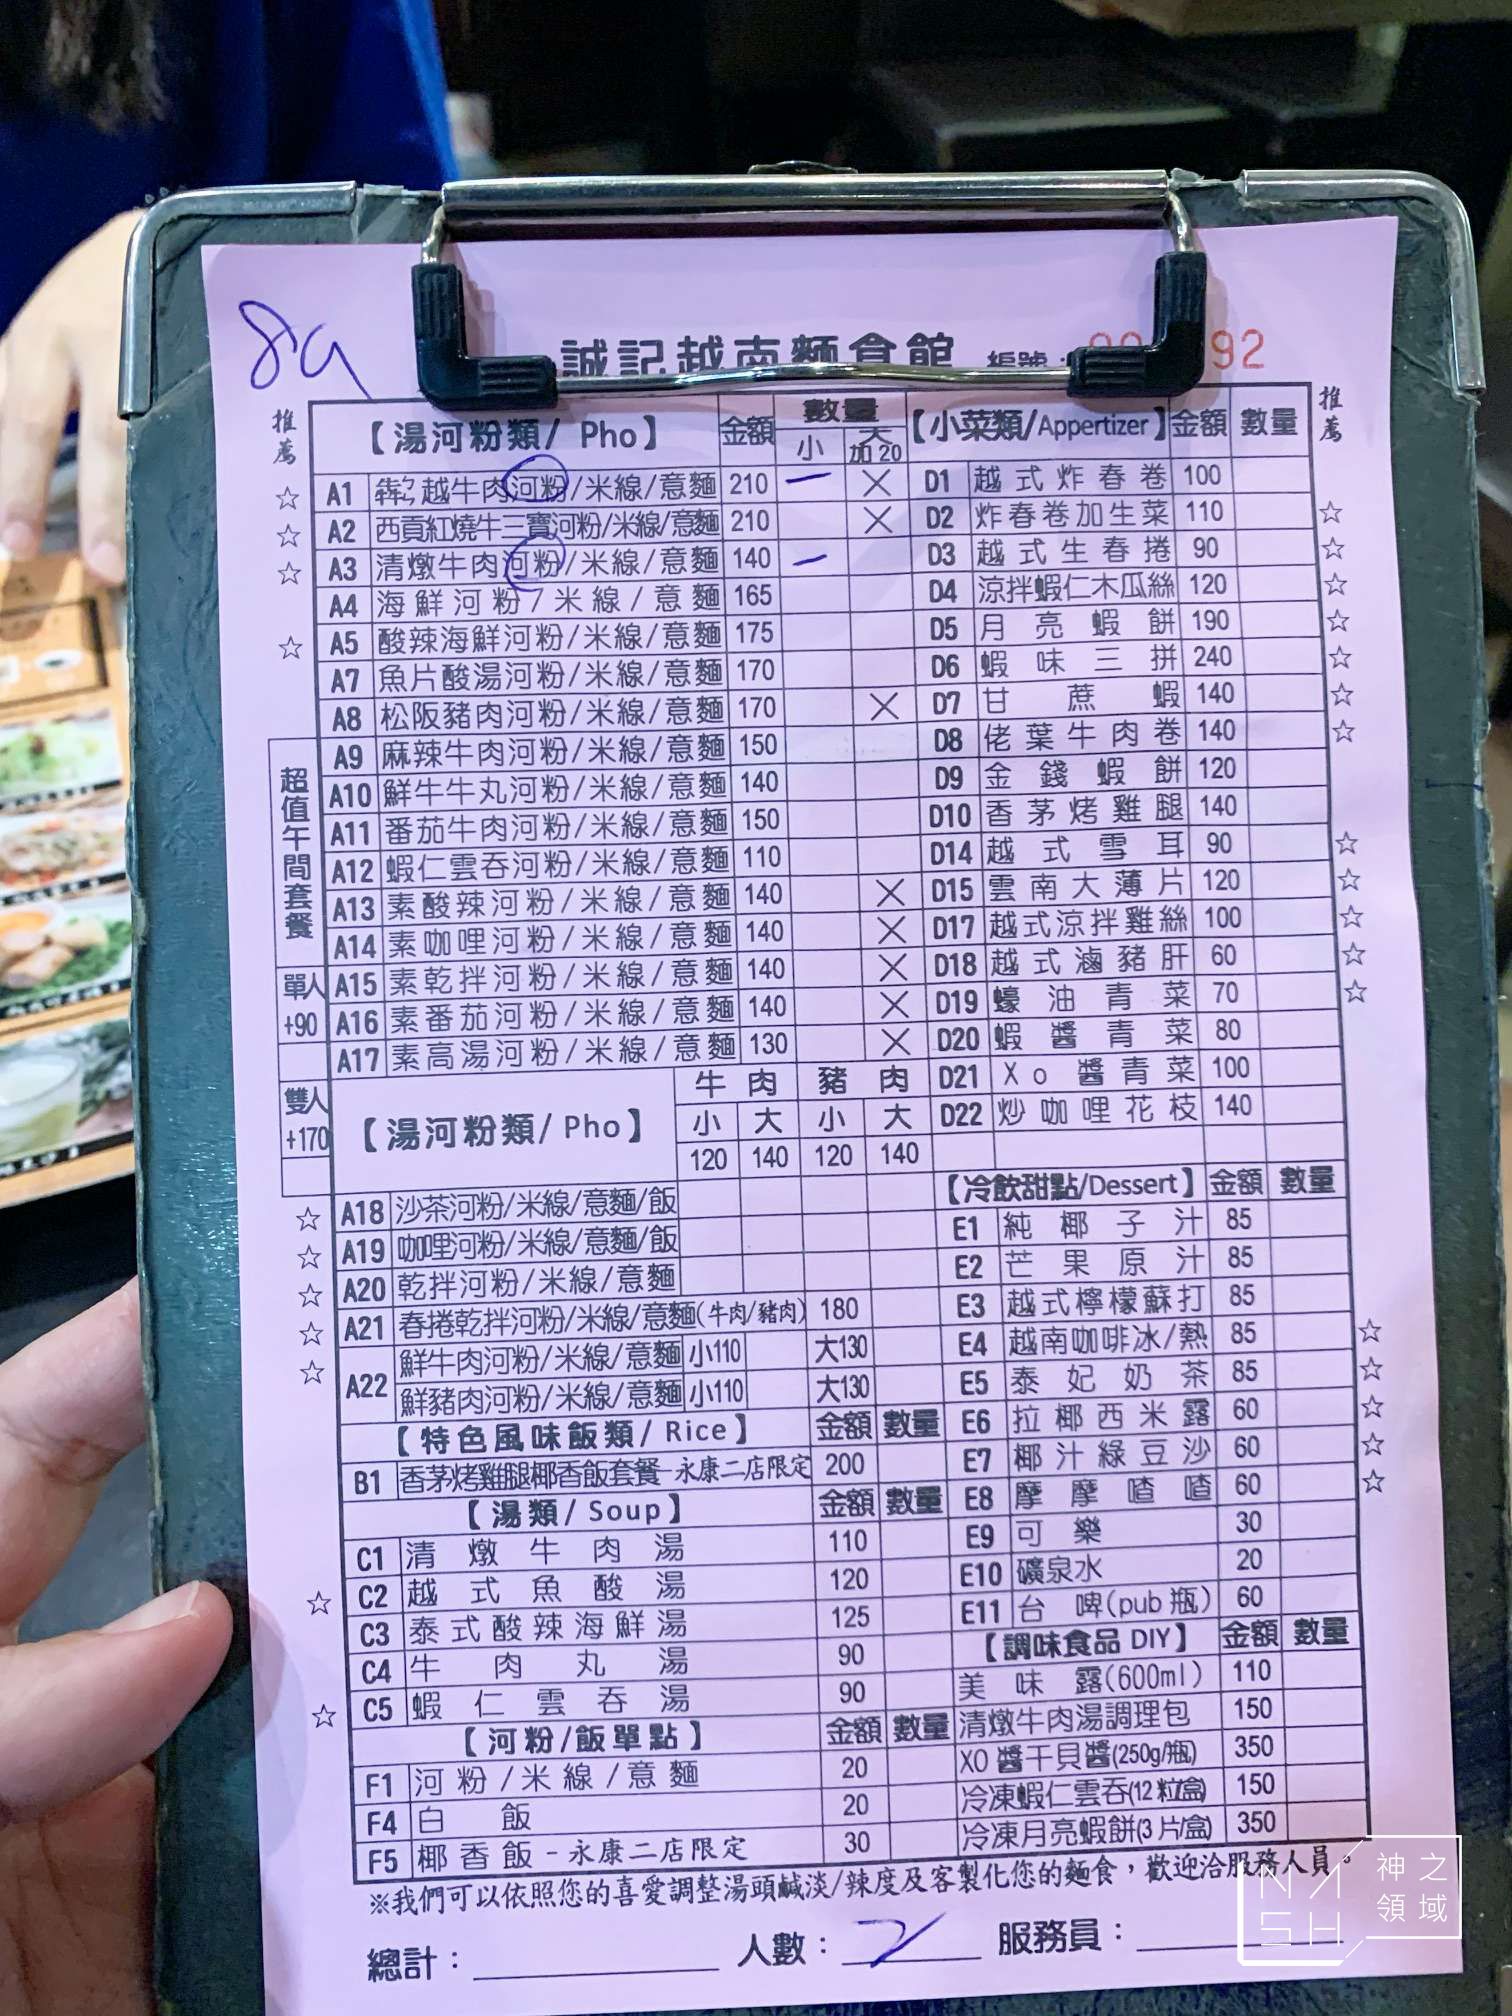 89
誠記越南麵食館 編號:
92
推薦
【湯河粉類/ Pho】 金額 數量 小 大加20
☆ A1 犇越牛肉河粉/米線/意麵 210 一 ×
☆ A2 西貢紅燒牛三寶河粉/米線/意麵 210 ×
☆ A3 清燉牛肉河粉/米線/意麵 140 一
A4 海鮮河粉/米線/意麵 165
☆ A5 酸辣海鮮河粉/米線/意麵 175
A7 魚片酸湯河粉/米線/意麵 170
A8 松阪豬肉河粉/米線/意麵 170 ×
A9 麻辣牛肉河粉/米線/意麵 150
A10 鮮牛牛丸河粉/米線/意麵 140
A11 番茄牛肉河粉/米線/意麵 150
A12 蝦仁雲吞河粉/米線/意麵 110
A13 素酸辣河粉/米線/意麵 140 ×
A14 素咖哩河粉/米線/意麵 140 ×
A15 素乾拌河粉/米線/意麵 140 ×
A16 素番茄河粉/米線/意麵 140 ×
A17 素高湯河粉/米線/意麵 130 ×
超值午間套餐
單人
+90
雙人
+170
【湯河粉類/ Pho】 牛肉 豬肉
小 大 小 大
120 140 120 140
☆ A18 沙茶河粉/米線/意麵/飯
☆ A19 咖哩河粉/米線/意麵/飯
☆ A20 乾拌河粉/米線/意麵
☆ A21 春捲乾拌河粉/米線/意麵(牛肉/豬肉) 180
☆ A22 鮮牛肉河粉/米線/意麵 小110 大130
鮮豬肉河粉/米線/意麵 小110 大130
【特色風味飯類/ Rice】 金額 數量
B1 香茅烤雞腿椰香飯套餐-永康二店限定 200
【湯類/ Soup】 金額 數量
C1 清燉牛肉湯 110
☆ C2 越式魚酸湯 120
C3 泰式酸辣海鮮湯 125
C4 牛肉丸湯 90
☆ C5 蝦仁雲吞湯 90
【河粉/飯單點】 金額 數量
F1 河粉/米線/意麵 20
F4 白飯 20
F5 椰香飯-永康二店限定 30
推薦
【小菜類/Appertizer】 金額 數量
D1 越式炸春卷 100
D2 炸春卷加生菜 110 ☆
D3 越式生春捲 90 ☆
D4 涼拌蝦仁木瓜絲 120 ☆
D5 月亮蝦餅 190 ☆
D6 蝦味三拼 240 ☆
D7 甘蔗蝦 140 ☆
D8 佬葉牛肉卷 140 ☆
D9 金錢蝦餅 120
D10 香茅烤雞腿 140
D14 越式雪耳 90 ☆
D15 雲南大薄片 120 ☆
D17 越式涼拌雞絲 100 ☆
D18 越式滷豬肝 60 ☆
D19 蠔油青菜 70 ☆
D20 蝦醬青菜 80
D21 Xo醬青菜 100
D22 炒咖哩花枝 140
【冷飲甜點/Dessert】 金額 數量
E1 純椰子汁 85
E2 芒果原汁 85
E3 越式檸檬蘇打 85
E4 越南咖啡冰/熱 85 ☆
E5 泰妃奶茶 85 ☆
E6 拉椰西米露 60 ☆
E7 椰汁綠豆沙 60 ☆
E8 摩摩喳喳 60 ☆
E9 可樂 30
E10 礦泉水 20
E11 台啤(pub瓶) 60
【調味食品 DIY】 金額 數量
美味露(600ml) 110
清燉牛肉湯調理包 150
XO醬干貝醬(250g/瓶) 350
冷凍蝦仁雲吞(12粒/盒) 150
冷凍月亮蝦餅(3片/盒) 350
※我們可以依照您的喜愛調整湯頭鹹淡/辣度及客製化您的麵食，歡迎洽服務人員。
總計： 人數：2 服務員：
NMSH 神之領域